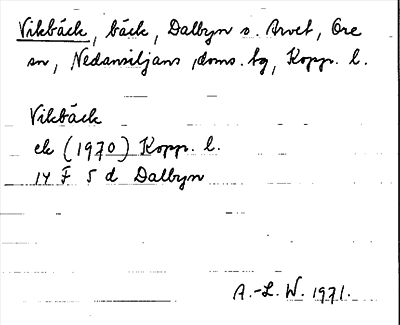 Vikbäck, bäck, Dalbyn o. Arvet, Ore
sn, Nedansiljans doms. tg, Kopp. l.
Vikbäck
ek (1970) Kopp. l.
14 F 5 d Dalbyn
A.-L. W. 1971.